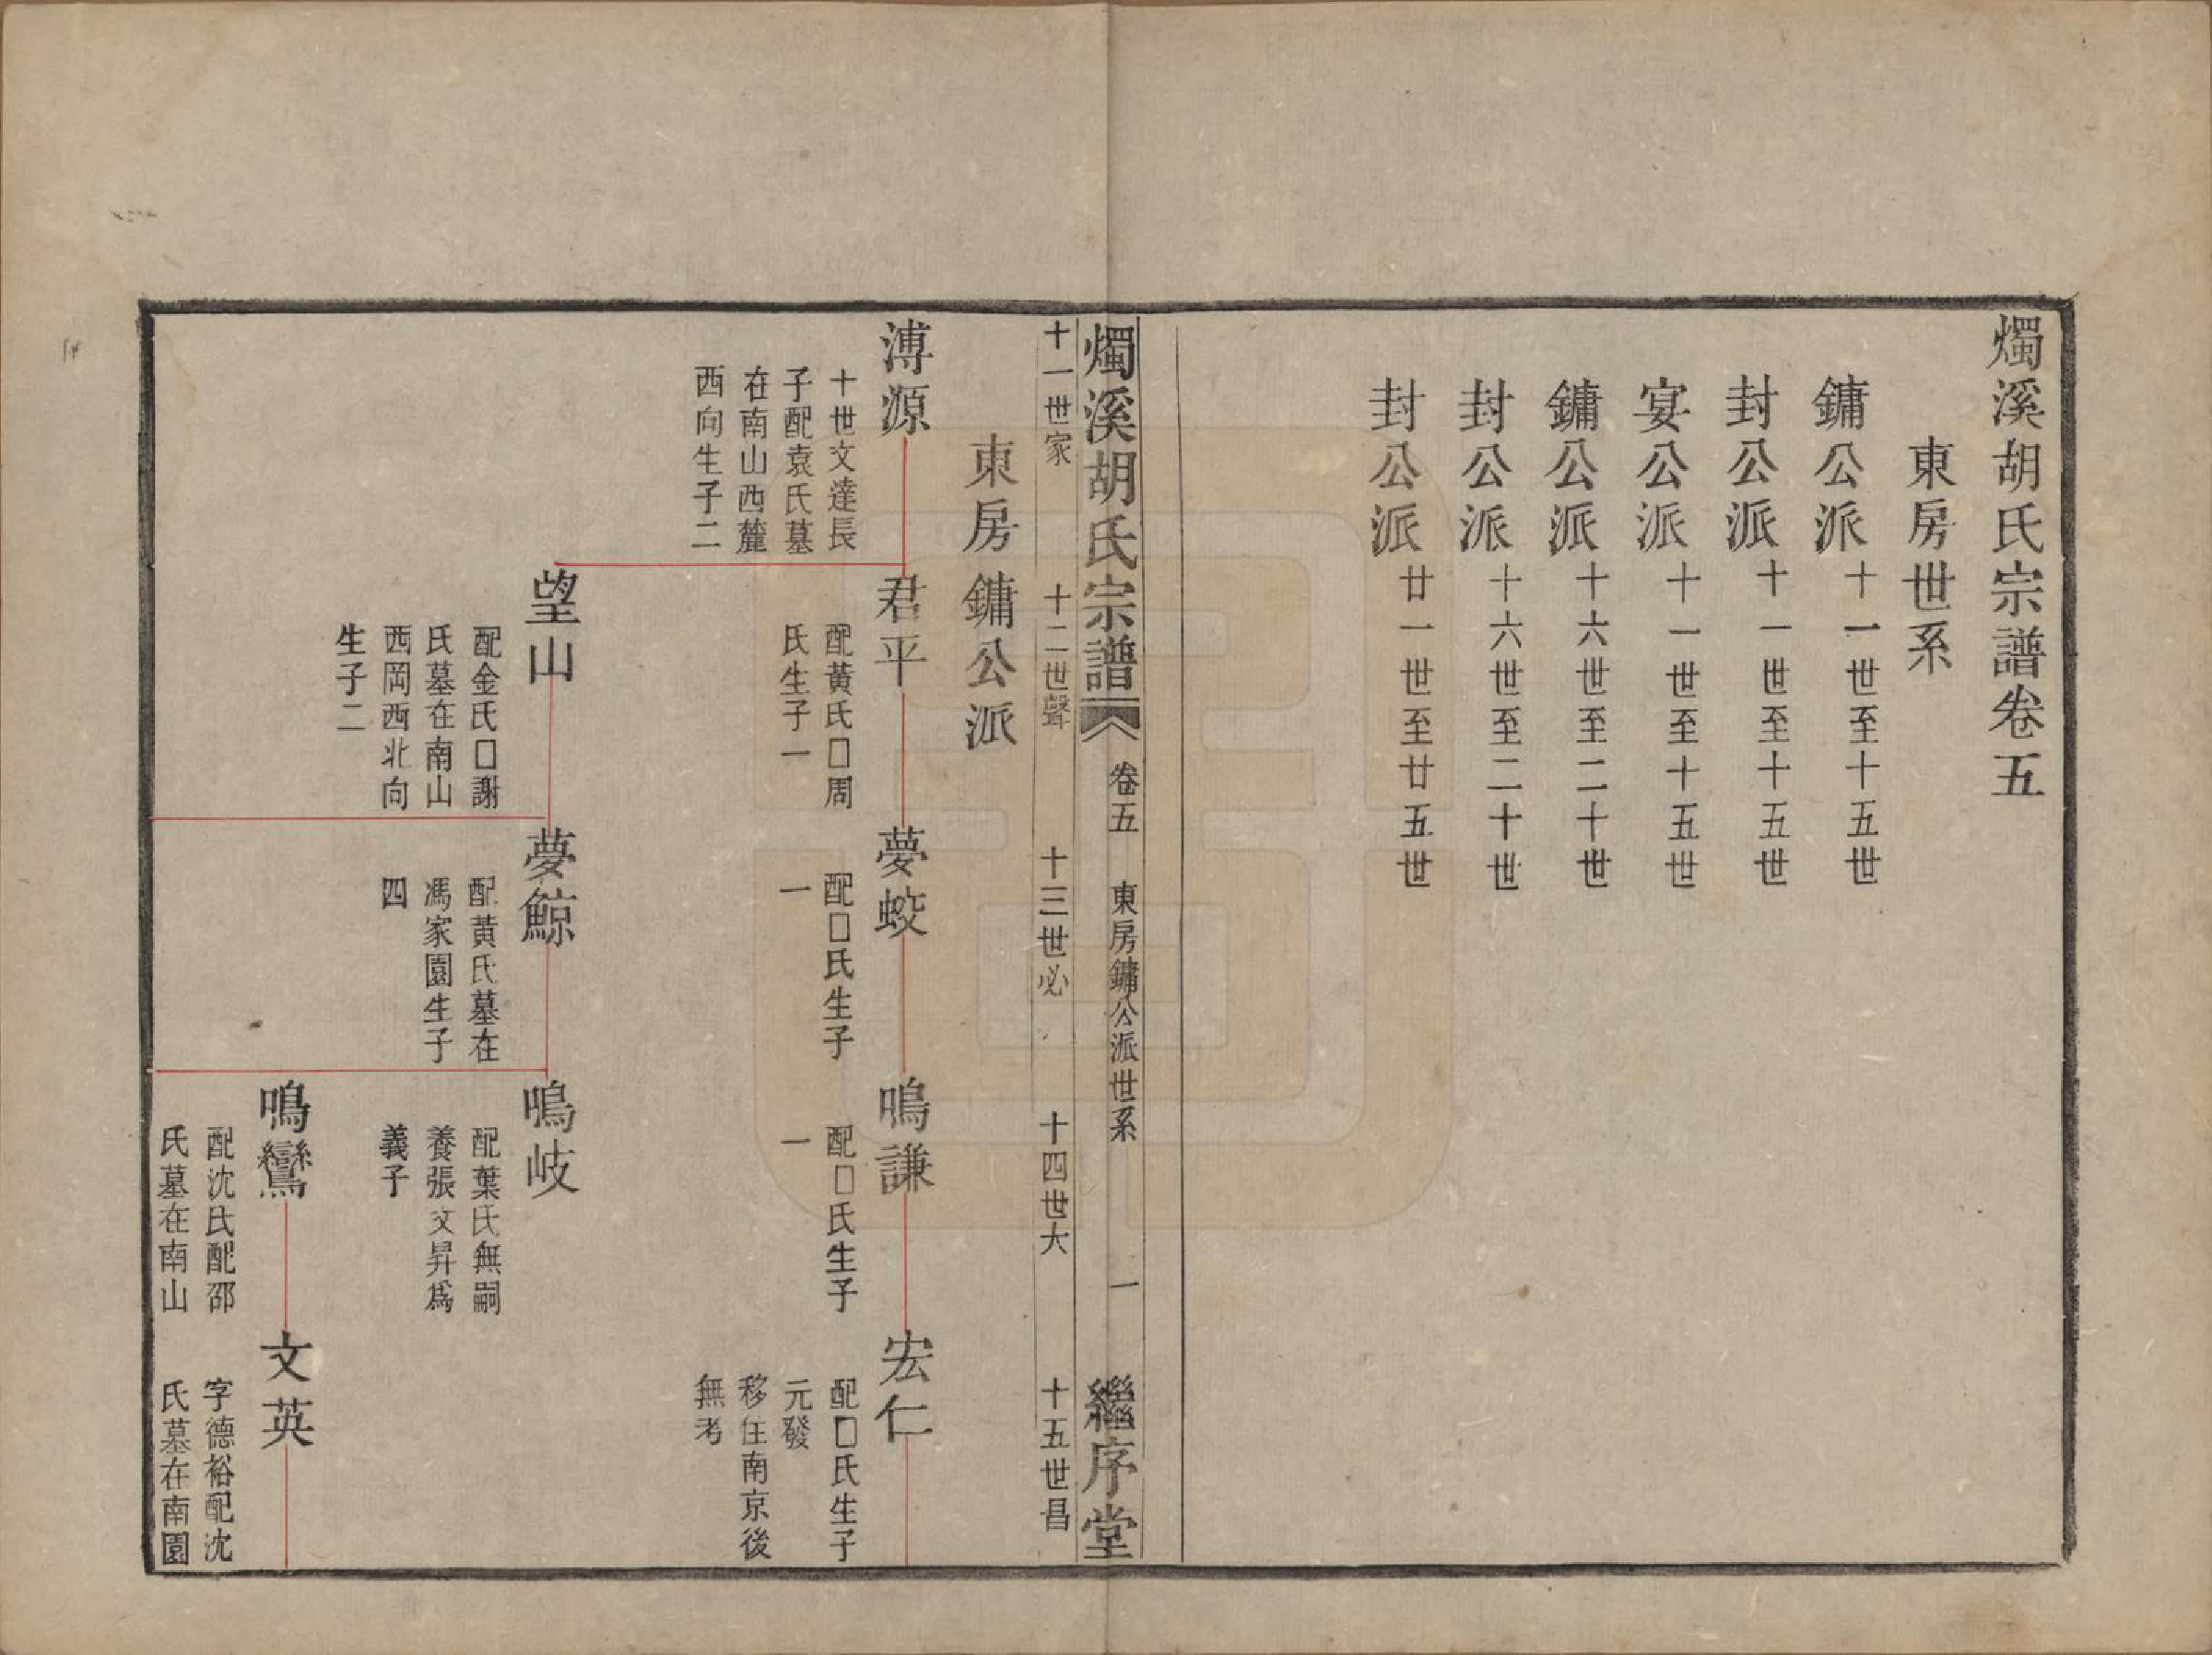 燭溪胡氏宗譜卷五
東房世系
鏞公派十一世至十五世
封公派十一世至十五世
宴公派十一世至十五世
鏞公派十六世至二十世
封公派十六世至二十世
封公派廿一世至廿五世
燭溪胡氏宗譜
卷五
東房鏞公派世系
一
繼序堂
十一世家
十二世聲
十三世必
十四世大
十五世昌
東房鏞公派
溥源
十世文達長
子配袁氏墓
在南山西麓
西向生子二
君平
配黃氏囗周
氏生子一
夢蛟
配囗氏生子
一
鳴謙
配囗氏生子
一
宏仁
配囗氏生子
元發
移住南京後
無考
望山
配金氏囗謝
氏墓在南山
西岡西北向
生子二
夢鯨
配黃氏墓在
馮家園生子
四
鳴岐
配葉氏無嗣
養張文昇爲
義子
鳴鸞
配沈氏配邵
氏墓在南山
文英
字德裕配沈
氏墓在南園